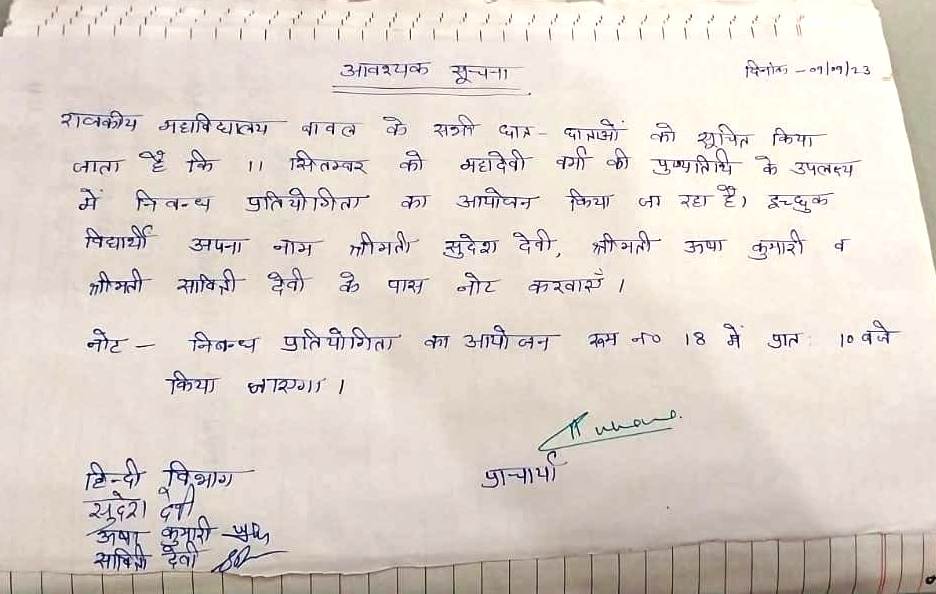 आवश्यक सूचना
दिनांक - 07/09/23
राजकीय महाविद्यालय बावल के सभी छात्र - छात्राओं को सूचित किया
जाता है कि 11 सितम्बर को महादेवी वर्मा की पुण्यतिथि के उपलक्ष्य
में निबन्ध प्रतियोगिता का आयोजन किया जा रहा है। इच्छुक
विद्यार्थी अपना नाम श्रीमती सुदेश देवी, श्रीमती ऊषा कुमारी व
श्रीमती सावित्री देवी के पास नोट करवाएँ ।
नोट - निबन्ध प्रतियोगिता का आयोजन रूम न० 18 में प्रात: 10 बजे
किया जाएगा ।
प्राचार्या
हिन्दी विभाग
सुदेश देवी
ऊषा कुमारी
सावित्री देवी